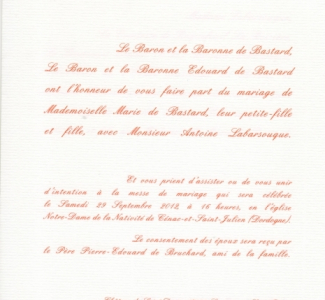 Le Baron et la Baronne de Bastard,
Le Baron et la Baronne Edouard de Bastard
ont l'honneur de vous faire part du mariage de
Mademoiselle Marie de Bastard, leur petite-fille
et fille, avec Monsieur Antoine Labarsouque.
Et vous prient d'assister ou de vous unir
d'intention à la messe de mariage qui sera célébrée
le Samedi 29 Septembre 2012, à 16 heures, en l'église
Notre-Dame de la Nativité de Cénac-et-Saint-Julien (Dordogne).
Le consentement des époux sera reçu par
le Père Pierre-Edouard de Brochard, ami de la famille.